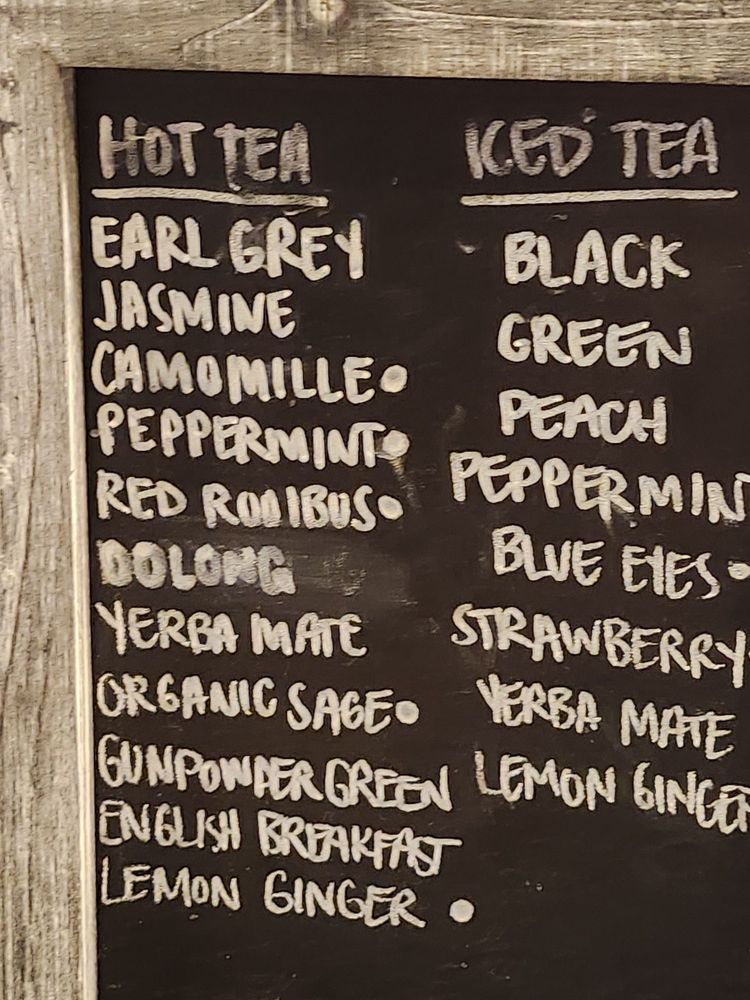 HOT TEA
EARL GREY
JASMINE
CAMOMILLE •
PEPPERMINT •
RED ROOIBUS •
OOLONG
YERBA MATE
ORGANIC SAGE •
GUNPOWDER GREEN
ENGLISH BREAKFAST
LEMON GINGER •
ICED TEA
BLACK
GREEN
PEACH
PEPPERMIN
BLUE EYES •
STRAWBERRY
YERBA MATE
LEMON GINGER